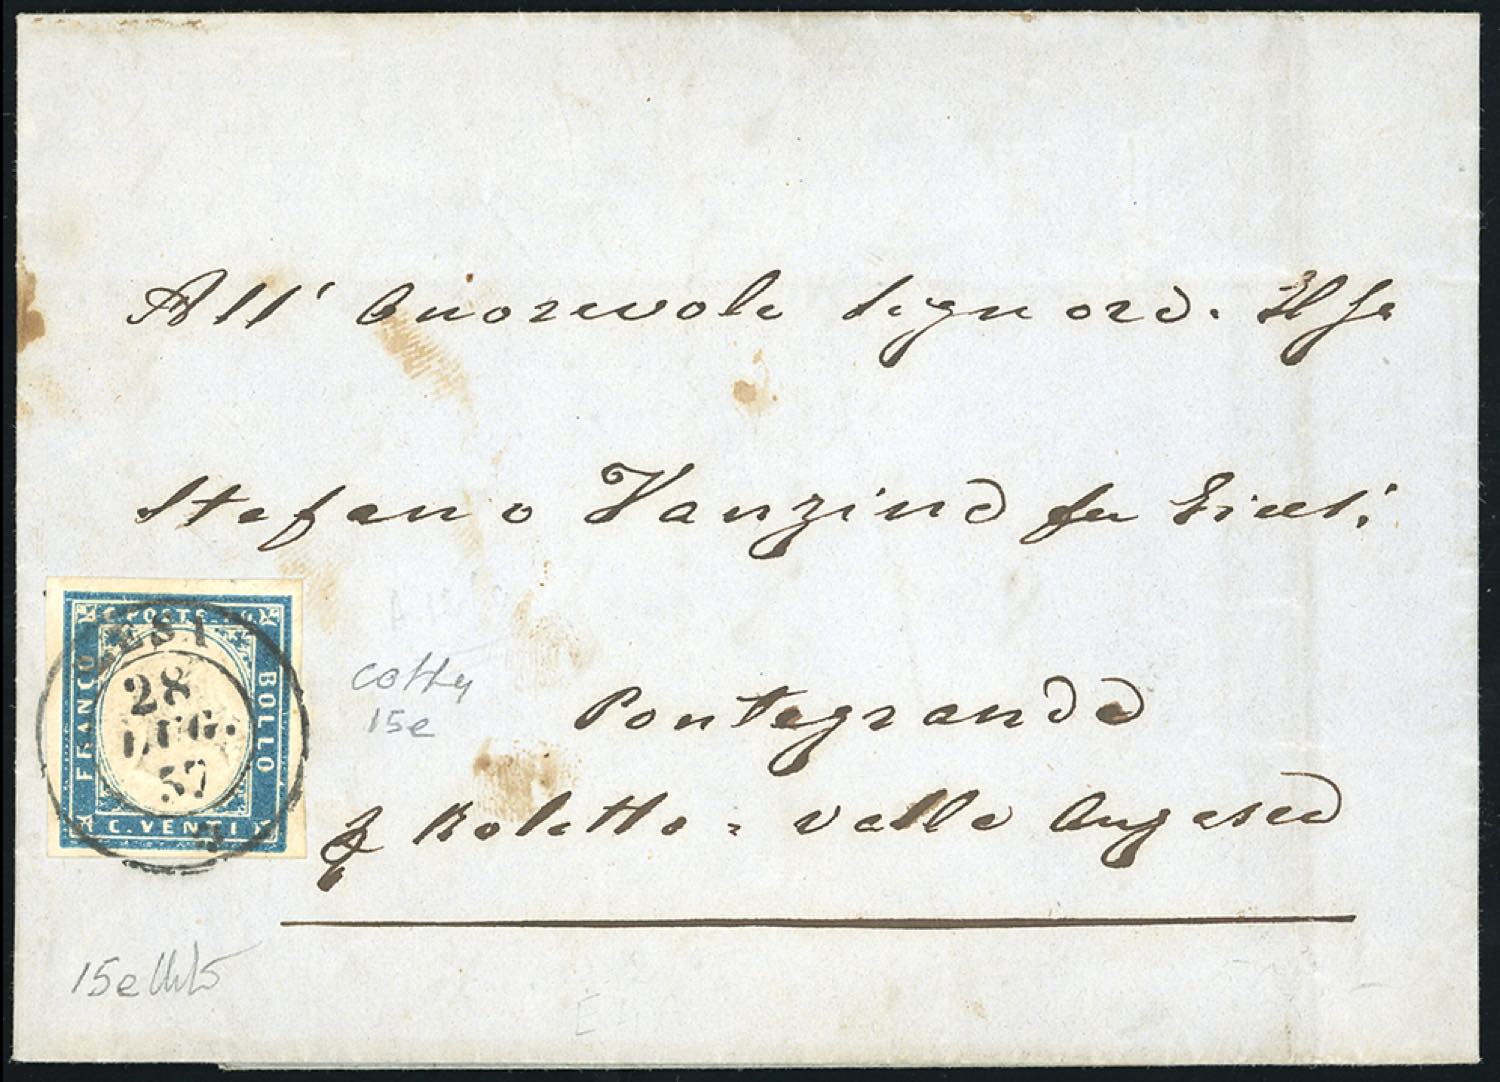 All' Onorevole Signore. Il Sr
Stefano Vanzino fu
Pontegrande
p Boletto = valle Anzasca
C. POSTE
FRANCO
BOLLO
C. VENTI
LESA
28
LUG.
57
cotty
15e
15e